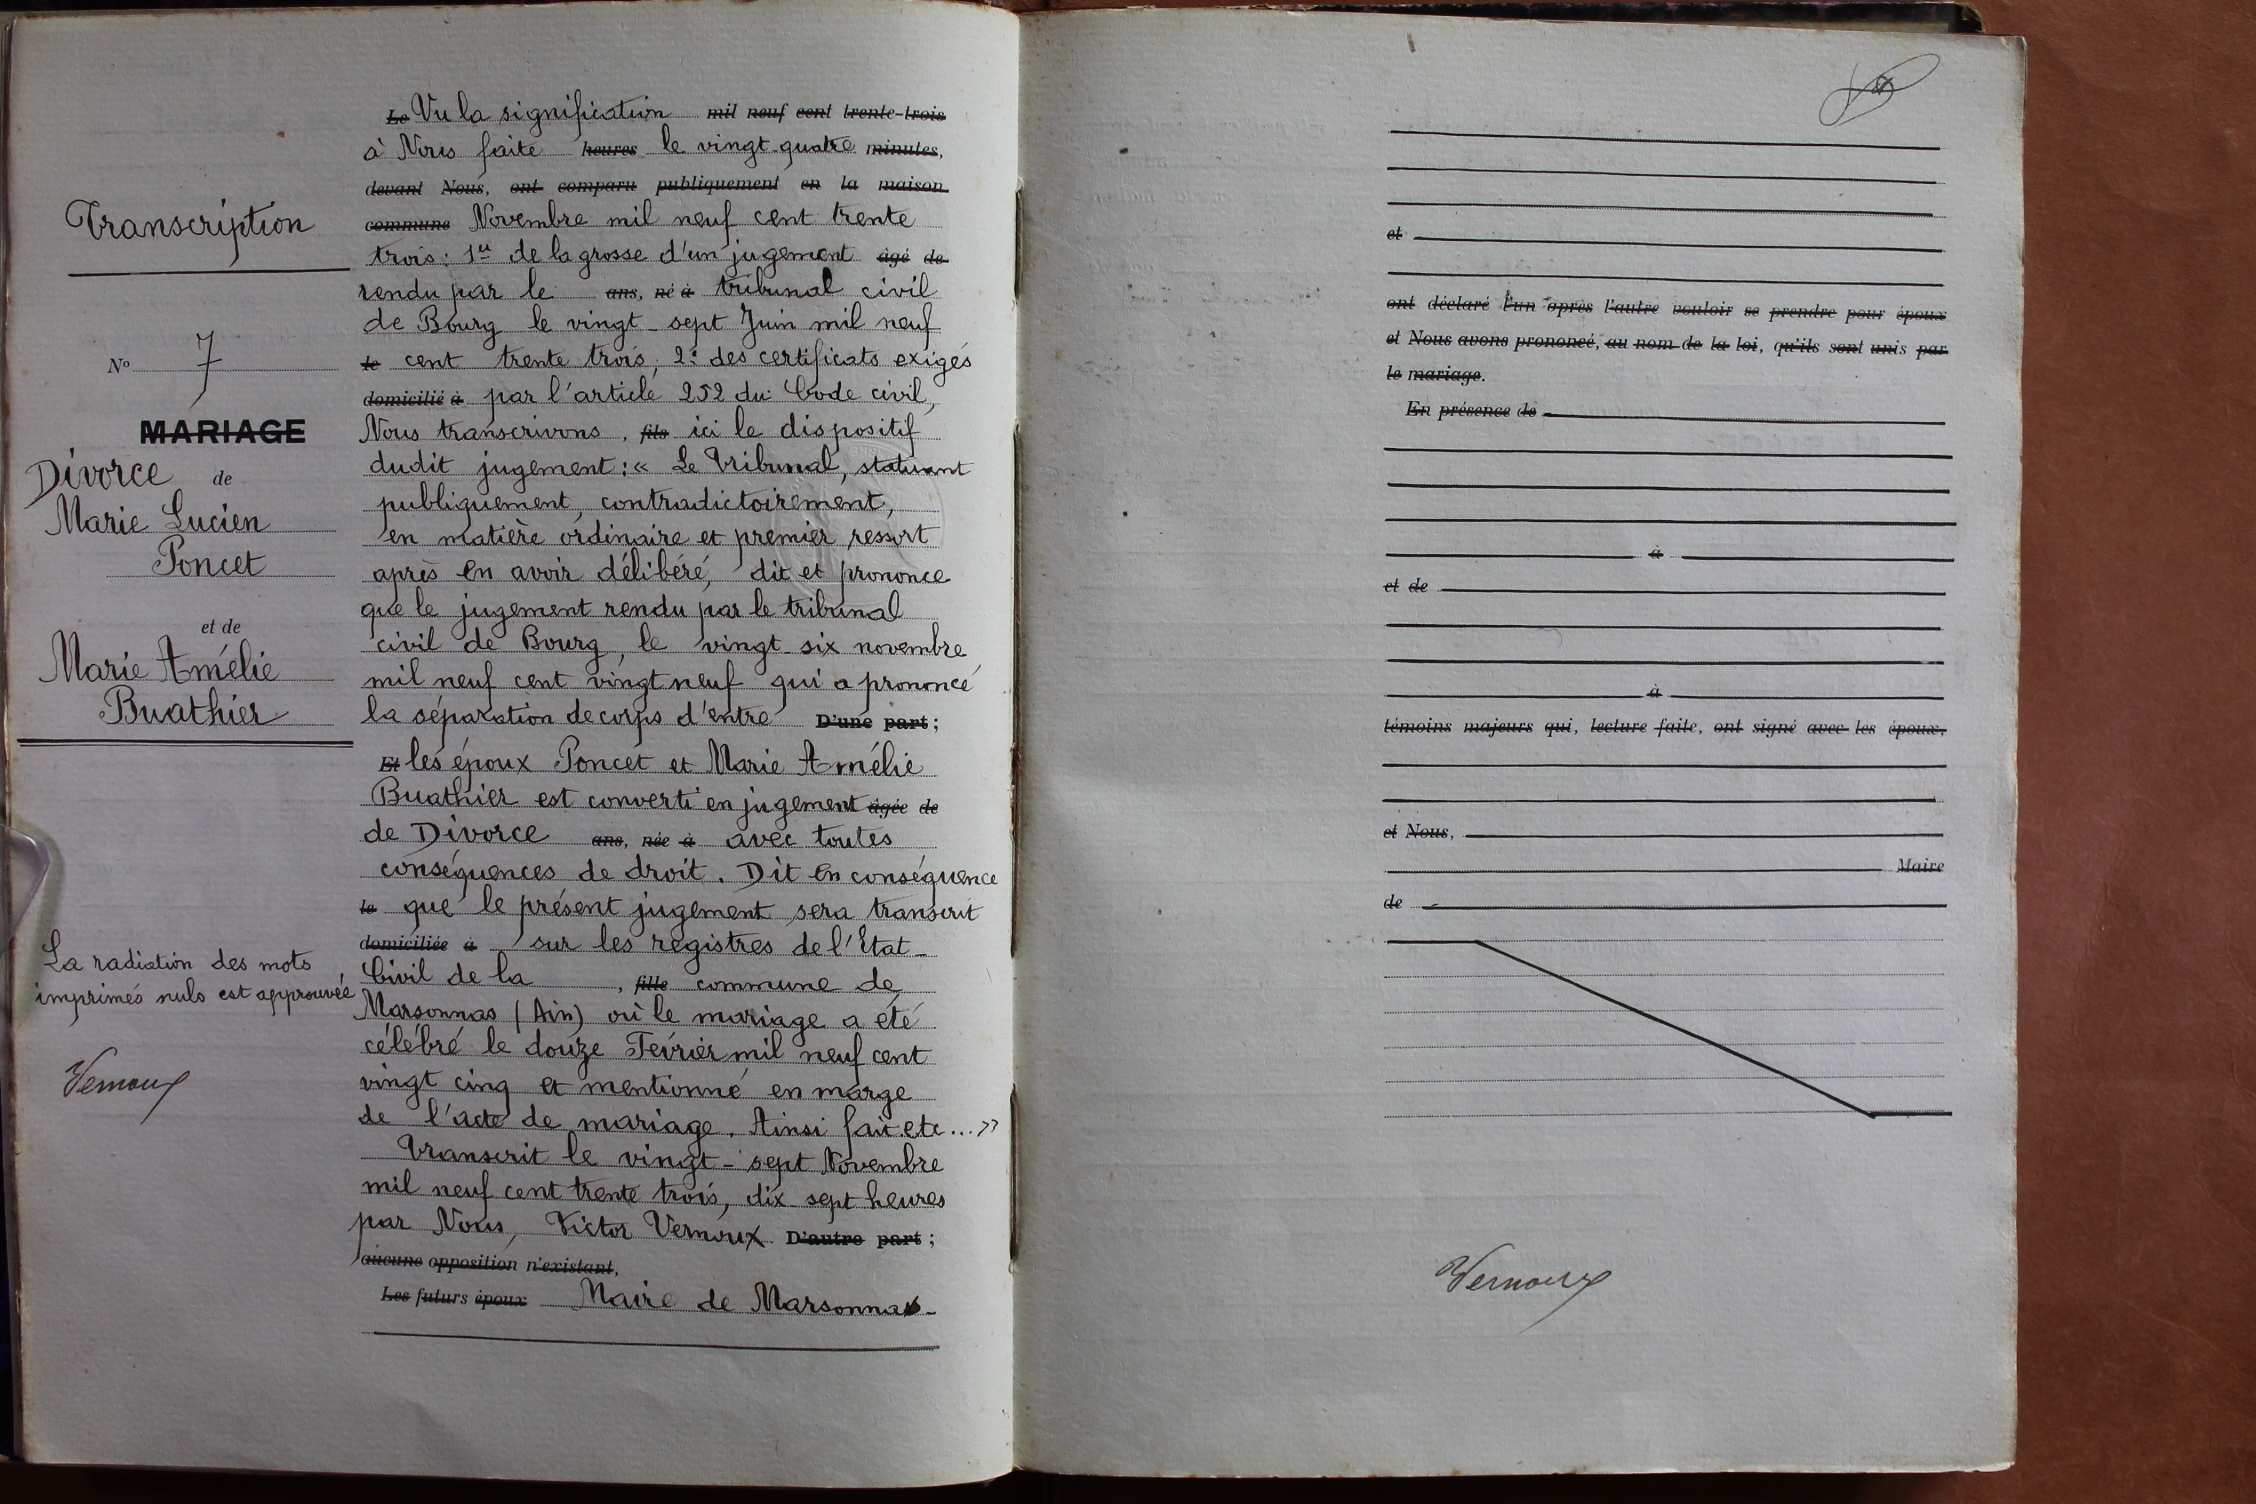 Transcription
N° 7
MARIAGE
Divorce de
Marie Lucien
Poncet
et de
Marie Amélie
Buathier
La radiation des mots
imprimés nuls est approuvée
Vernoux
Le Vu la signification mil neuf cent trente-trois
à Nous faite heures le vingt-quatre minutes,
devant Nous, ont comparu publiquement en la maison
commune Novembre mil neuf cent trente
trois : 1er de la grosse d'un jugement âgé de
rendu par le ans, né à tribunal civil
de Bourg le vingt-sept Juin mil neuf
le cent trente trois, 2° des certificats exigés
domicilié à par l'article 252 du Code civil,
Nous transcrivons, fils ici le dispositif
dudit jugement : « Le Tribunal, statuant
publiquement, contradictoirement,
en matière ordinaire et premier ressort
après en avoir délibéré, dit et prononce
que le jugement rendu par le tribunal
civil de Bourg, le vingt-six novembre
mil neuf cent vingt neuf qui a prononcé
la séparation de corps d'entre D'une part ;
Et les époux Poncet et Marie Amélie
Buathier est converti en jugement âgée de
de Divorce ans, née à avec toutes
conséquences de droit. Dit en conséquence
le que le présent jugement sera transcrit
domiciliée à sur les registres de l'Etat-
Civil de la , fille commune de
Marsonnas (Ain) où le mariage a été
célébré le douze Février mil neuf cent
vingt cinq et mentionné en marge
de l'acte de mariage. Ainsi fait etc... »
Transcrit le vingt-sept Novembre
mil neuf cent trente trois, dix-sept heures
par Nous, Victor Vernoux D'autre part ;
aucune opposition n'existant,
Les futurs époux Maire de Marsonnas-
et
ont déclaré l'un après l'autre vouloir se prendre pour époux
et Nous avons prononcé, au nom de la loi, qu'ils sont unis par
le mariage.
En présence de
à
et de
à
témoins majeurs qui, lecture faite, ont signé avec les époux,
et Nous,
Maire
de
Vernoux